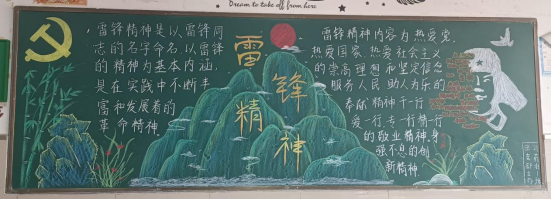 Dream to take off from here
雷锋精神是以雷锋同
志的名字命名,以雷锋
的精神为基本内涵,
是在实践中不断丰
富和发展着的
革命精神
雷锋精神
雷锋精神内容为热爱党,
热爱国家,热爱社会主义
的崇高理想和坚定信念
服务人民 助人为乐的
奉献精神 干一行
爱一行 专一行精一行
的敬业精神,自
强不息的创
新精神